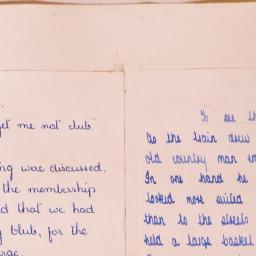 get me not club"
ng were discussed.
the membership
d that we had
club, for the
To see th
As the train drew
old country man
In one hand he
looked more suited
than to the streets
held a large basket